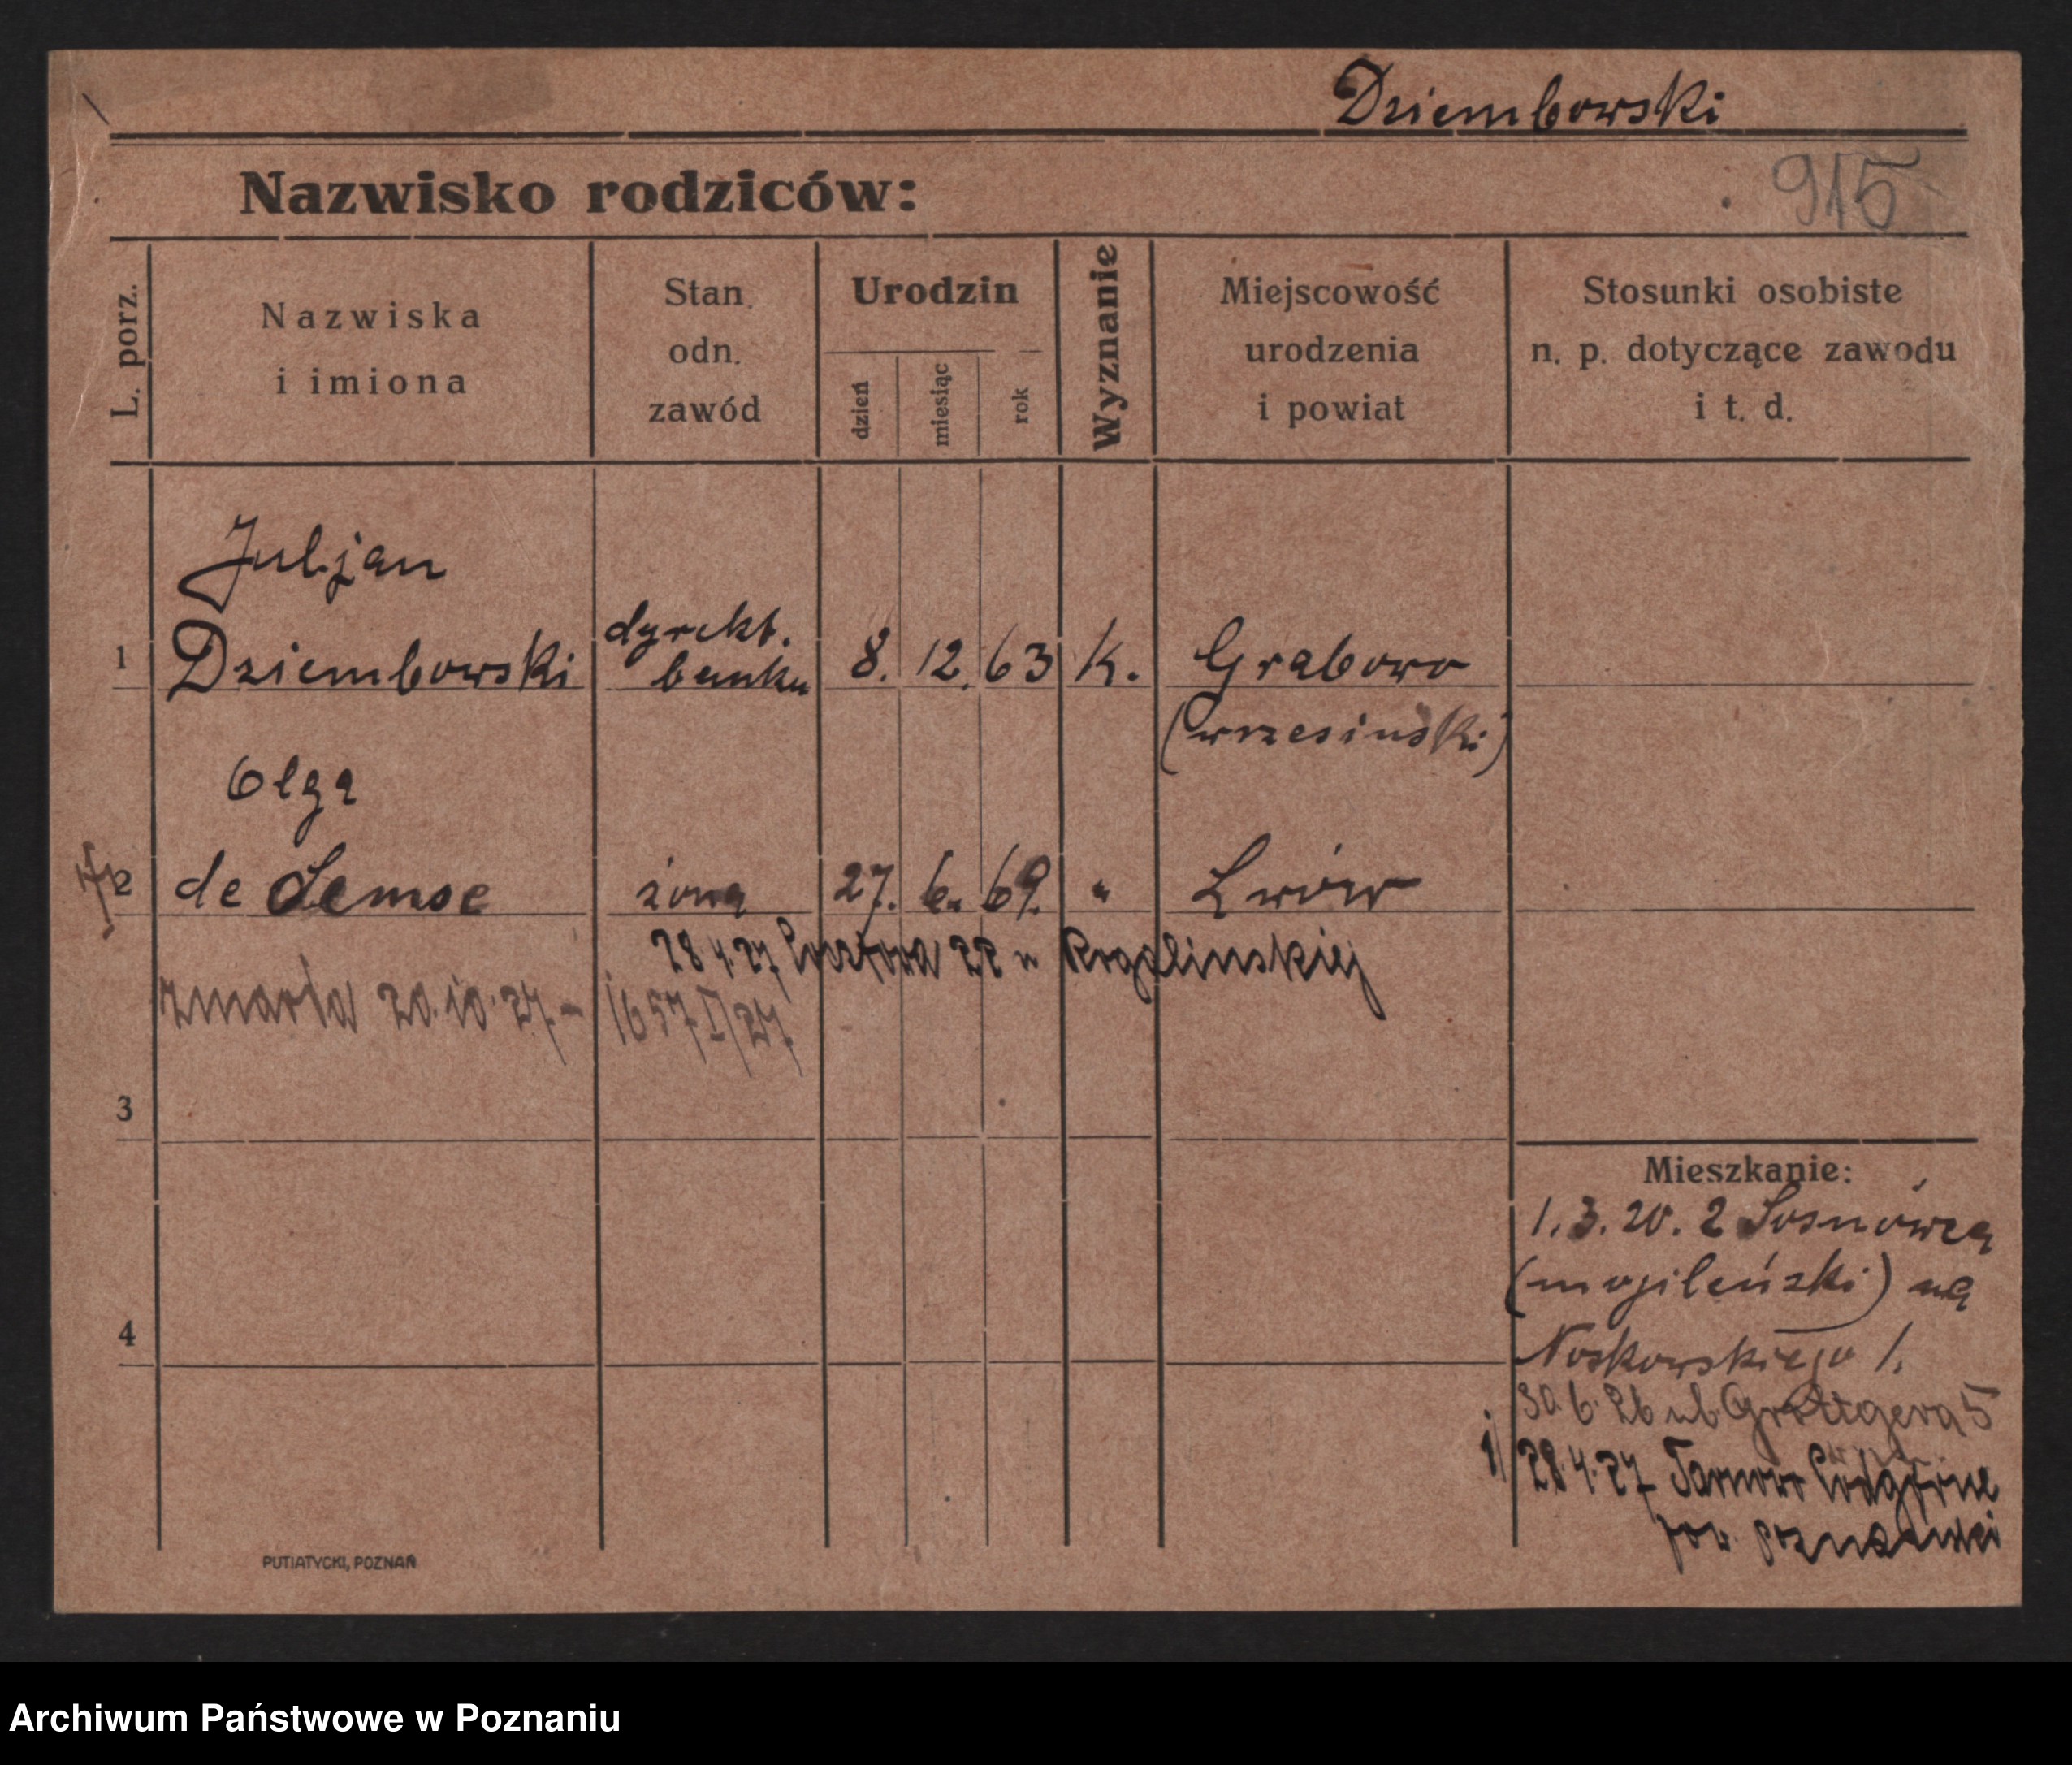 Dziembowski
Nazwisko rodziców:
915
L. porz.
Nazwiska
i imiona
Stan
odn.
zawód
Urodzin
dzień
miesiąc
rok
Wyznanie
Miejscowość
urodzenia
i powiat
Stosunki osobiste
n. p. dotyczące zawodu
i t. d.
Juljan
1 Dziembowski dyrekt. banku 8. 12. 63 k. Grabowo
(wrzesiński)
Olga
2 de Semse żona 27. 6. 69. " Lwów
28.4.27 Pocztowa 22 u Rogalinskiej
zmarła 20.10.27. - 1657 I/27.
3
Mieszkanie:
1.3.20. z Sosnówca
(mogileński) na
4
Noskowskiego 1.
30.6.26 ul. Grottgera 5
1) 28.4.27 Tarnowo Podgórne
pow. poznański
PUTIATYCKI, POZNAŃ
Archiwum Państwowe w Poznaniu